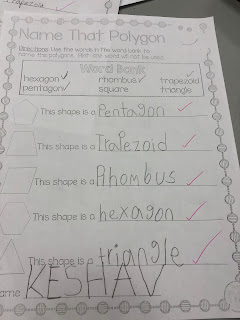 Name That Polygon
Directions: Use the words in the word bank to
name the polygons.
Word Bank
hexagon rhombus trapezoid
pentagon square triangle
This shape is a Pentagon
This shape is a Trapezoid
This shape is a Rhombus
This shape is a hexagon
This shape is a triangle
KESHAV